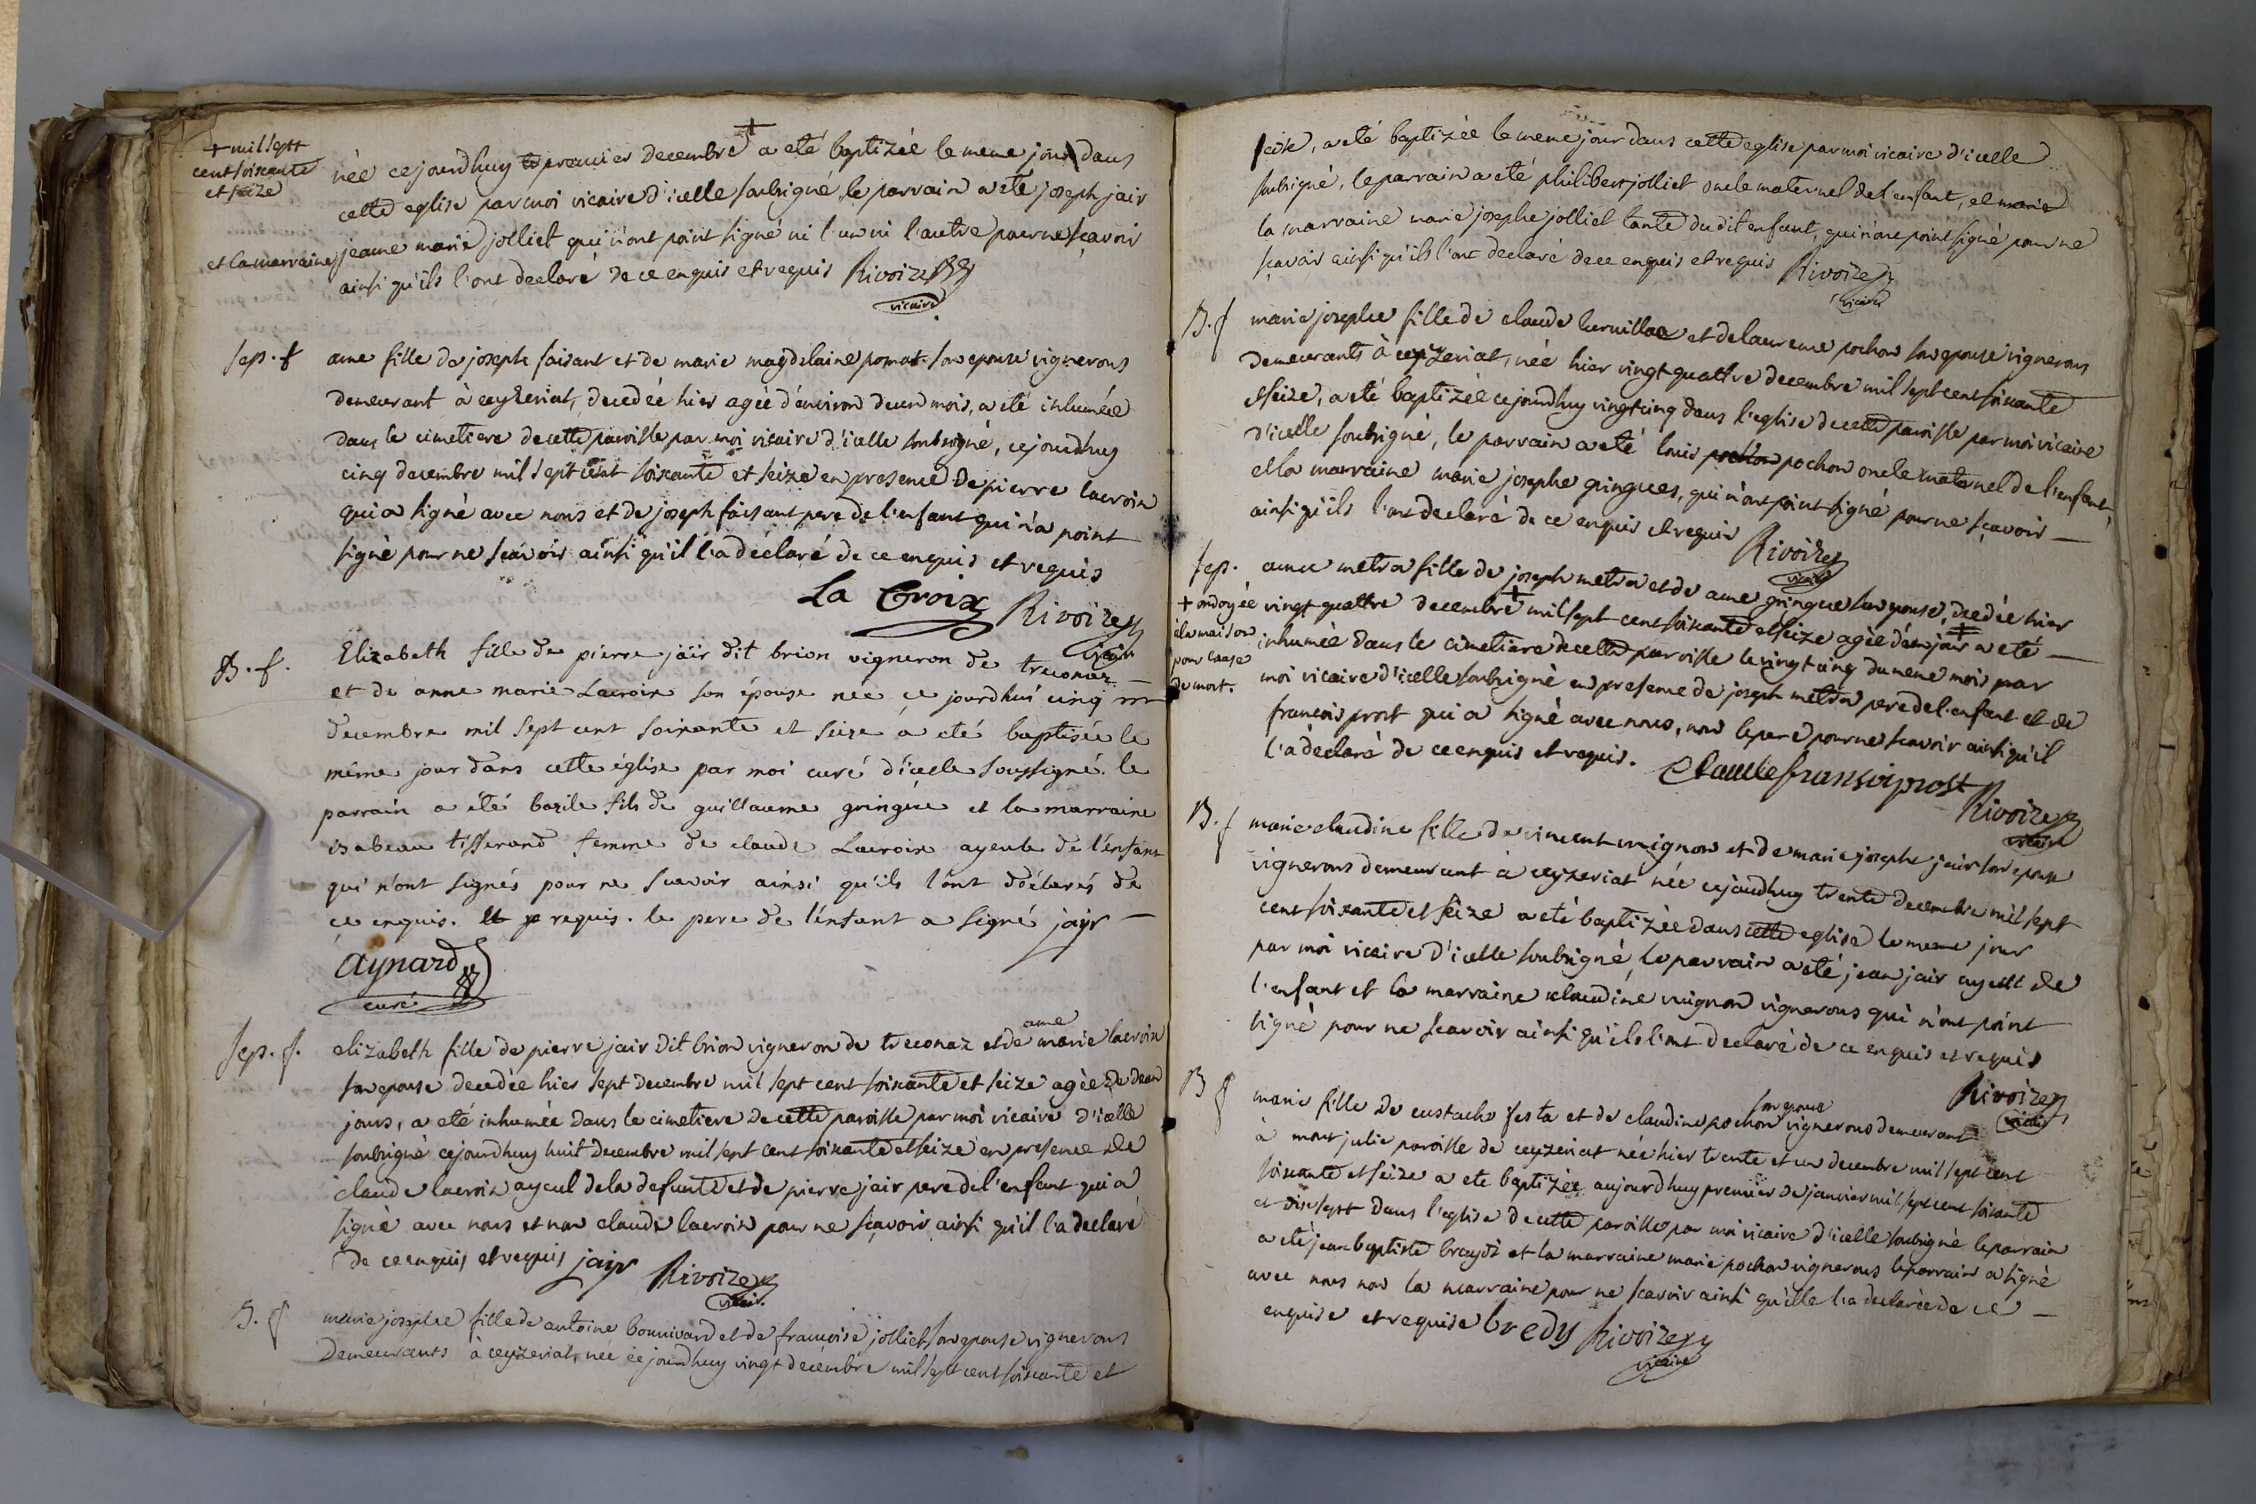 + mil sept
cent soixante
et seize
née cejourdhuy premier decembre + a eté baptizée le meme jour dans
cette eglise par moi vicaire d'icelle soubsigné, le parrain a eté joseph jair
et la marraine jeanne marie jolliet qui n'ont point signé ni l'un ni l'autre pour ne sçavoir
ainsi qu'ils l'ont declaré de ce enquis et requis Rivoire
vicaire
sep. f anne fille de joseph faisant et de marie magdelaine pomat son epouse vignerons
demeurant à ceyzeriat, decedée hier agée d'environ deux mois, a eté inhumée
dans le cimetiere de cette paroisse par moi vicaire d'icelle soubsigné, cejourdhuy
cinq decembre mil sept cent soixante et seize en presence de pierre lacroix
qui a signé avec nous et de joseph faisant pere de l'enfant qui n'a point
signé pour ne scavoir ainsi qu'il l'a déclaré de ce enquis et requis
La Croix Rivoire
vicair
B. f. Elizabeth fille de pierre jaïr dit brion vigneron de treconaz
et de anne marie Lacroix son épouse née ce jourdhui cinq
decembre mil sept cent soixante et seize a eté baptisée le
même jour dans cette église par moi curé d'icelle soussigné. le
parrain a été bazile fils de guillaume gringue et la marraine
isabeau tisserand femme de claude Lacroix ayeule de l'enfant
qui n'ont signés pour ne scavoir ainsi qu'ils l'ont déclarés de
ce enquis. et requis. le pere de l'enfant a signé jayr
Aynard
curé
sep. f. elizabeth fille de pierre jair dit brion vigneron de treconaz et de anne marie lacroix
son epouse decedée hier sept decembre mil sept cent soixante et seize agée de deux
jours, a eté inhumée dans le cimetiere de cette paroisse par moi vicaire d'icelle
soubsigné cejourdhuy huit decembre mil sept cent soixante et seize en presence de
claude lacroix ayeul de la defunte et de pierre jair pere de l'enfant qui a
signé avec nous et non claude lacroix pour ne sçavoir ainsi qu'il l'a declaré
de ce enquis et requis jayr Rivoire
vicair.
B. f marie josephe fille de antoine bonnivard et de françoise jolliet son epouse vignerons
demeurants à ceyzeriat, née cejourdhuy vingt decembre mil sept cent soixante et
seize, a eté baptizée le meme jour dans cette eglise par moi vicaire d'icelle
soubsigné, le parrain a eté philibert jolliet oncle maternel de l'enfant, et marie
la marraine marie josephe jolliet tante du dit enfant, qui n'ont point signé pour ne
sçavoir ainsi qu'ils l'ont declaré de ce enquis et requis Rivoire
vicaire
B. f marie josephe fille de claude et de laurence pochon son epouse vignerons
demeurants à ceyzeriat, née hier vingt quattre decembre mil sept cent soixante
et seize, a eté baptizée cejourdhuy vingt cinq dans l'eglise de cette paroisse par moi vicaire
d'icelle soubsigné, le parrain a eté louis pochon pochon oncle maternel de l'enfant,
et la marraine marie josephe gringues, qui n'ont point signé pour ne sçavoir
ainsi qu'ils l'ont declaré de ce enquis et requis Rivoire
vicaire
sep. anne metra fille de joseph metra et de anne gringue son epouse, decedée hier
+ ondoyée
à la maison
pour cause
de mort.
vingt quattre decembre + mil sept cent soixante et seize agée d'un jour a eté
inhumée dans le cimetiere de cette paroisse le vingt cinq du meme mois par
moi vicaire d'icelle soubsigné en presence de joseph metra pere de l'enfant et de
françois prost qui a signé avec nous, non le pere pour ne scavoir ainsi qu'il
l'a déclaré de ce enquis et requis. Claude fransoi prost
Rivoire
vicair
B. f marie claudine fille de vincent et de marie josephe jair son epouse
vignerons demeurant à ceyzeriat née cejourdhuy trente decembre mil sept
cent soixante et seize a eté baptizée dans cette eglise le meme jour
par moi vicaire d'icelle soubsigné, le parrain a eté jean jair ayeul de
l'enfant et la marraine claudine vignerons qui n'ont point
signé pour ne scavoir ainsi qu'ils l'ont declaré de ce enquis et requis
Rivoire
vicair
B f marie fille de eustache festa et de claudine pochon son epouse vignerons demeurant
à mont julie paroisse de ceyzeriat née hier trente et un decembre mil sept cent
soixante et seize a eté baptizée aujourdhuy premier de janvier mil sept cent soixante
et dix sept dans l'eglise de cette paroisse par moi vicaire d'icelle soubsigné le parrain
a eté jean baptiste et la marraine marie pochon vignerons le parrain a signé
avec nous non la marraine pour ne scavoir ainsi qu'elle l'a declarée de ce
enquise et requise bredy Rivoire
vicaire